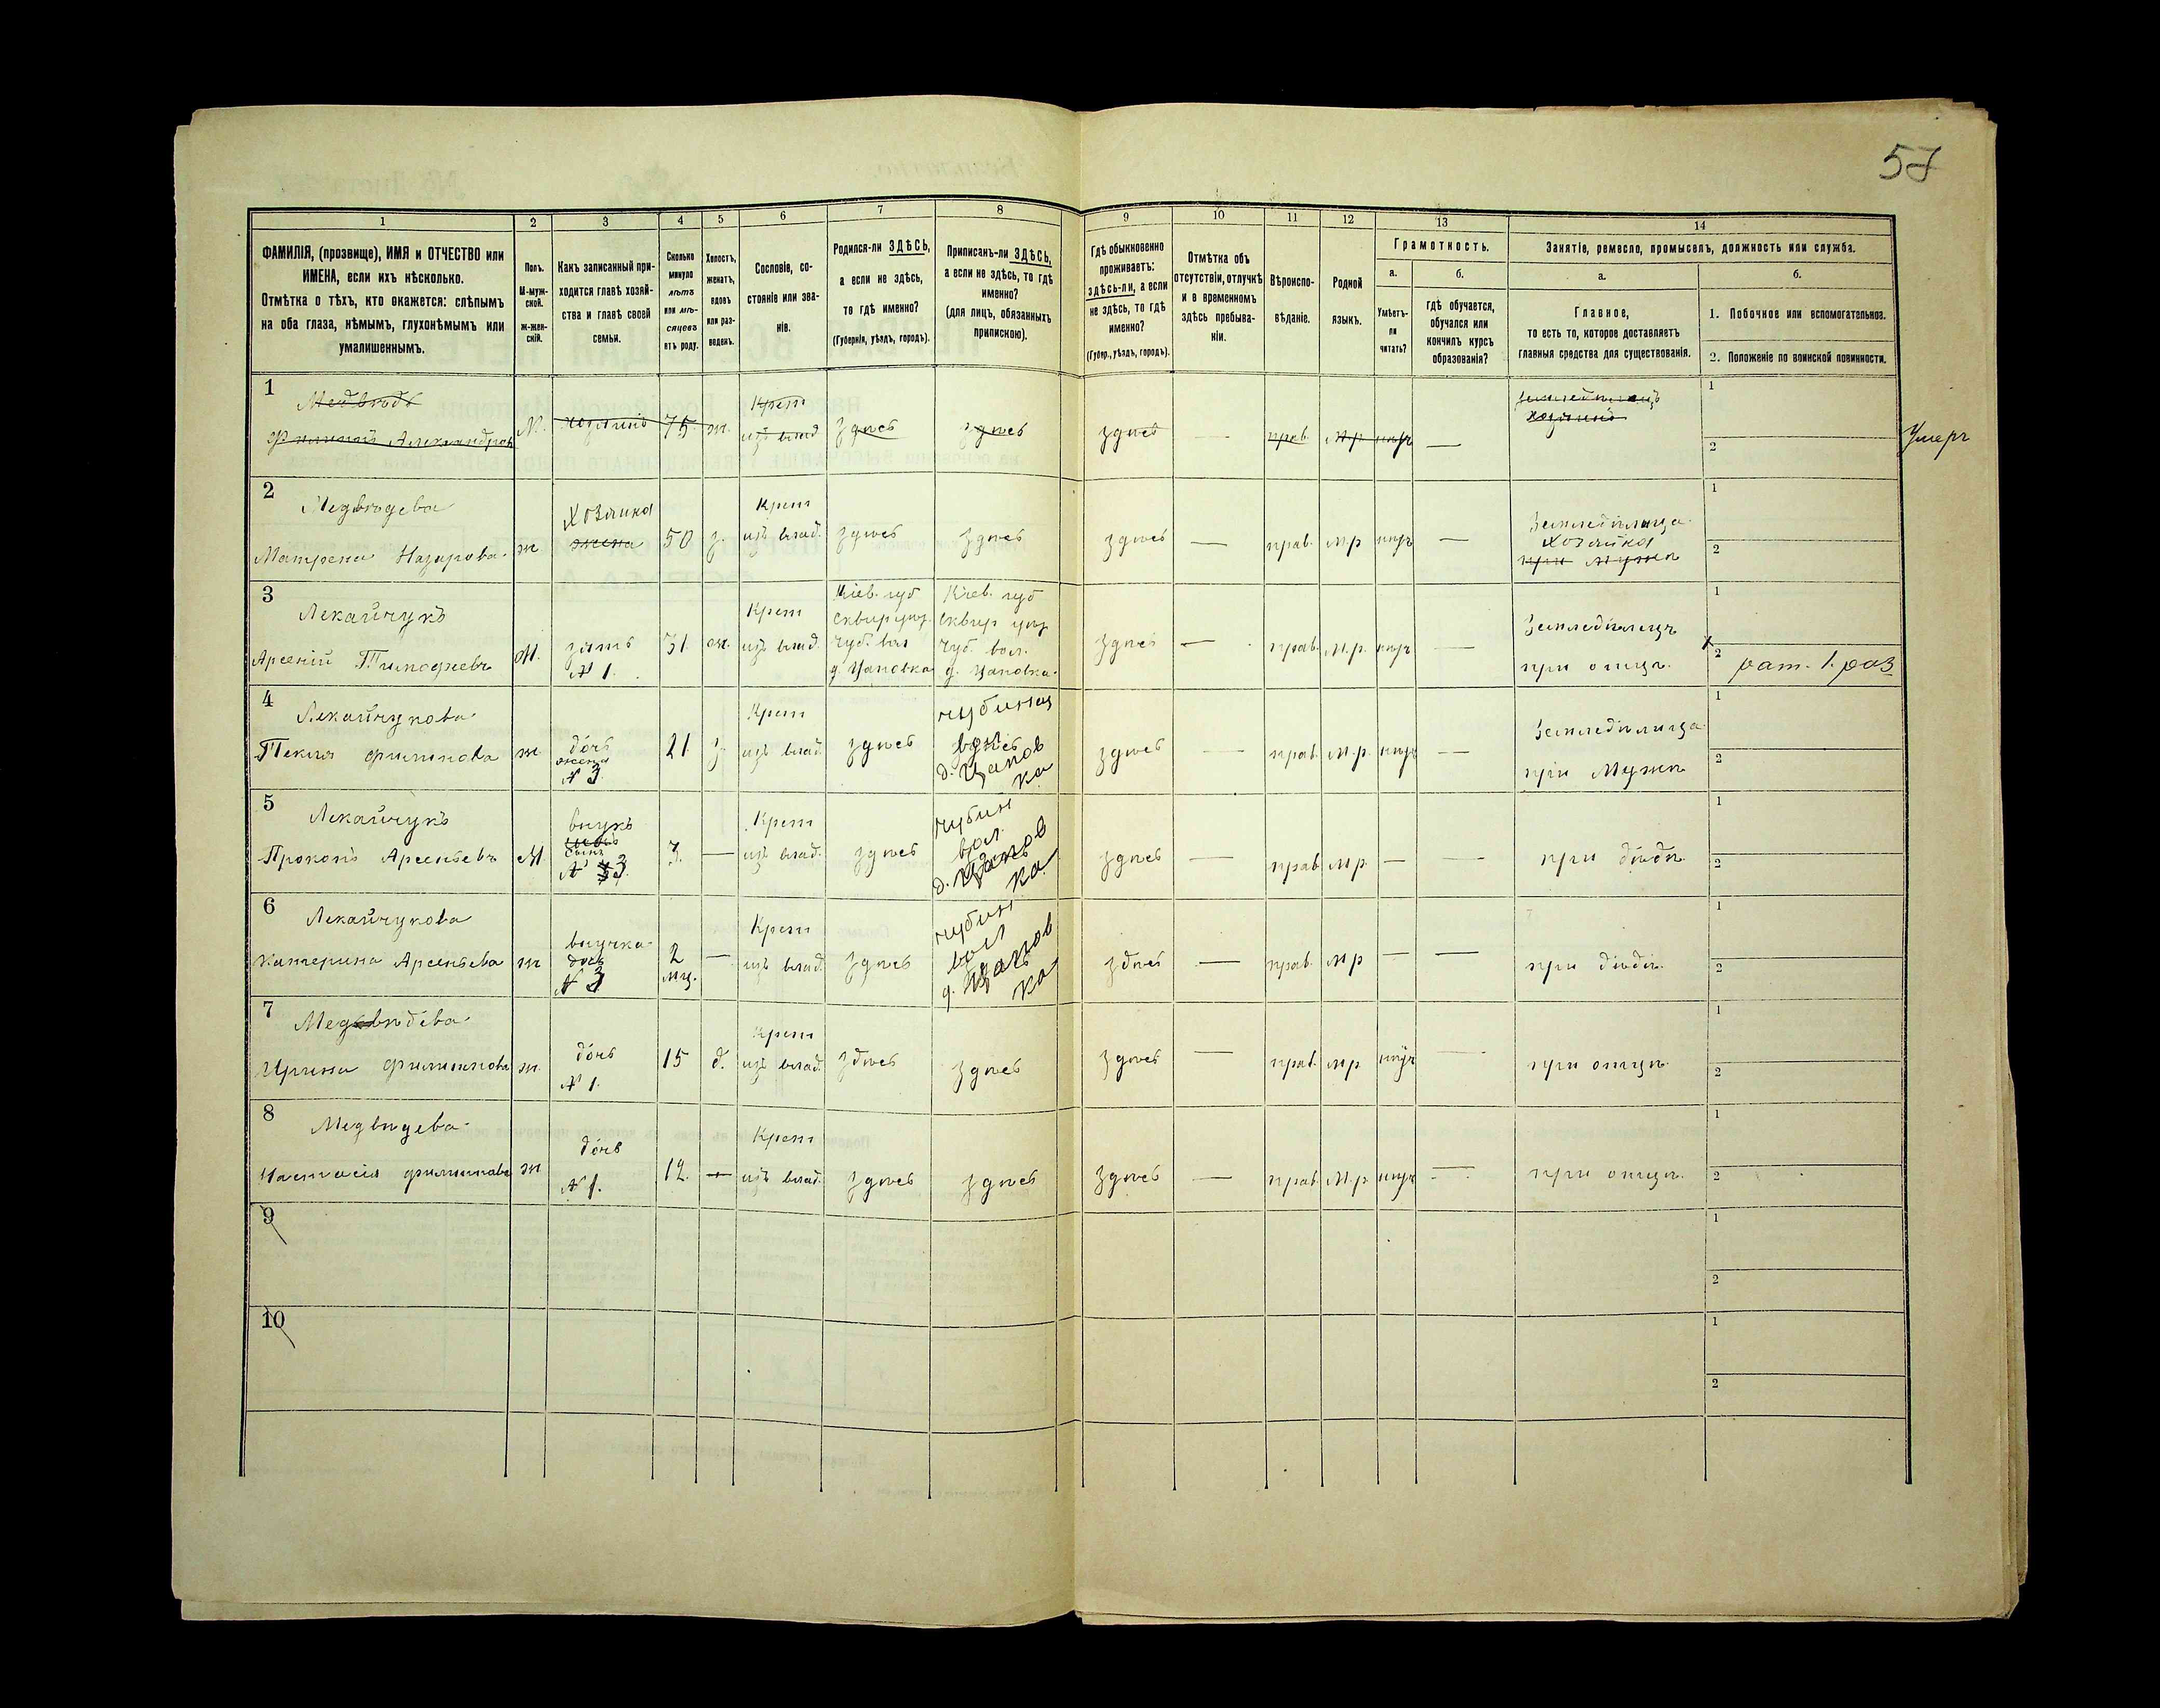 57
1 2 3 4 5 6 7 8 9 10 11 12 13 14
ФАМИЛІЯ, (прозвище), ИМЯ и ОТЧЕСТВО или
ИМЕНА, если ихъ нѣсколько.
Отмѣтка о тѣхъ, кто окажется: слѣпымъ
на оба глаза, нѣмымъ, глухонѣмымъ или
умалишеннымъ.
Полъ.
М-муж-
ской.
ж-жен-
скій.
Какъ записанный при-
ходится главѣ хозяй-
ства и главѣ своей
семьи.
Сколько
минуло
лѣтъ
или мѣ-
сяцевъ
отъ роду.
Холостъ,
женатъ,
вдовъ
или раз-
веденъ.
Сословіе, со-
стояніе или зва-
ніе.
Родился-ли ЗДѢСЬ,
а если не здѣсь,
то гдѣ именно?
(Губернія, уѣздъ, городъ).
Приписанъ-ли ЗДѢСЬ,
а если не здѣсь, то гдѣ
именно?
(для лицъ, обязанныхъ
припискою).
Гдѣ обыкновенно
проживаетъ:
здѣсь-ли, а если
не здѣсь, то гдѣ
именно?
(Губер., уѣздъ, городъ).
Отмѣтка объ
отсутствіи, отлучкѣ
и о временномъ
здѣсь пребыва-
ніи.
Вѣроиспо-
вѣданіе.
Родной
языкъ.
Грамотность.
а.
Умѣетъ-
ли
читать?
б.
Гдѣ обучается,
обучался или
кончилъ курсъ
образованія?
Занятіе, ремесло, промыселъ, должность или служба.
а.
Главное,
то есть то, которое доставляетъ
главныя средства для существованія.
б.
1. Побочное или вспомогательное.
2. Положеніе по воинской повинности.
1
Медвѣдь
Филиппъ Александровъ
М. хозяинъ 75. ж.
Крест
изъ влад.
здѣсь здѣсь здѣсь — прав. М.р. нѣтъ —
земледѣлецъ
хозяинъ
1
2
Умеръ
2
Медвѣдева
Матрена Назарова
ж
Хозяйка
жена
50 з.
Крест
изъ влад.
здѣсь здѣсь здѣсь — прав. М.р нѣтъ —
Земледѣлица
хозяйка
при мужѣ
1
2
3
Лекайчукъ
Арсеній Тимофѣевъ
М.
зять
N 1.
31. ж.
Крест
изъ влад.
Кіев. губ
Сквир уѣз.
Чуб. вол
д. Цаповка
Кіев. губ
Сквир уѣз
Чуб. вол.
д. Цаповка
здѣсь — прав. М.р. нѣтъ —
Земледѣлецъ
при отцѣ.
1
2 рат. 1. раз
4
Лекайчукова
Текля Филипова
ж
дочь
жена
N 3.
21. з.
Крест
изъ влад.
здѣсь
Чубинец
вол
здѣсь
д. Цапов
ка
здѣсь — прав. М.р. нѣтъ —
Земледѣлица
при Мужѣ
1
2
5
Лекайчукъ
Прокопъ Арсеньевъ
М.
внукъ
сынъ
N 3.
3. —
Крест
изъ влад.
здѣсь
Чубин
вол.
здѣсь
д. Цапов
ка
здѣсь — прав М.р. — —
при дѣдѣ
1
2
6
Лекайчукова
Катерина Арсеньева
ж
внучка
дочь
N 3
2
мѣ.
—
Крест
изъ влад.
здѣсь
Чубин
вол
д. Цапов
ка
здѣсь — прав. М.р — —
при дѣдѣ.
1
2
7
Медвѣдева
Ирина Филиппова
ж.
дочь
N 1.
15 д.
Крест
изъ влад.
здѣсь здѣсь здѣсь — прав. М.р нѣтъ —
при отцѣ
1
2
8
Медвѣдева
Настасія Филиппова
ж
дочь
N 1.
12. —
Крест
изъ влад.
здѣсь здѣсь здѣсь — прав М.р нѣтъ —
при отцѣ.
1
2
9
1
2
10
1
2